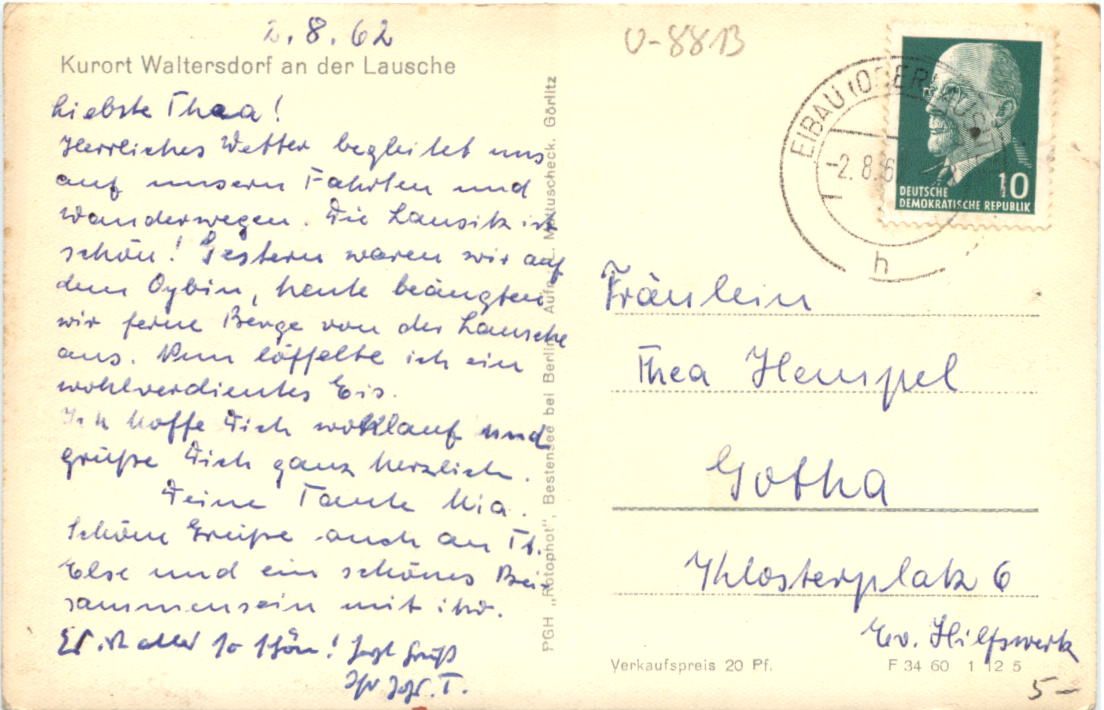 2.8.62
U-8813
Kurort Waltersdorf an der Lausche
Liebste Thea!
Herrliches Wetter begleitet uns
auf unsern Fahrten und
Wanderwegen. Die Lausitz ist
schön! Gestern waren wir auf
dem Oybin, heute beäugten
wir ferne Berge von der Lausche
aus. Nun löffelte ich ein
wohlverdientes Eis.
Ich hoffe Dich wohlauf und
grüße Dich ganz herzlich.
Deine Tante Mia.
Schöne Grüße auch an Tt.
Else und ein schönes Bei-
sammensein mit ihr.
Es ist alles so schön!
PGH „Rotophot", Bestensee bei Berlin Aufn.: Mattuscheck. Görlitz
EIBAU (OBERLAUSITZ)
-2.8.6
h
10
DEUTSCHE
DEMOKRATISCHE REPUBLIK
Fräulein
Thea Hempel
Gotha
Klosterplatz 6
Ev. Hilfswerk
Verkaufspreis 20 Pf.
F 34 60 1 12 5
5-